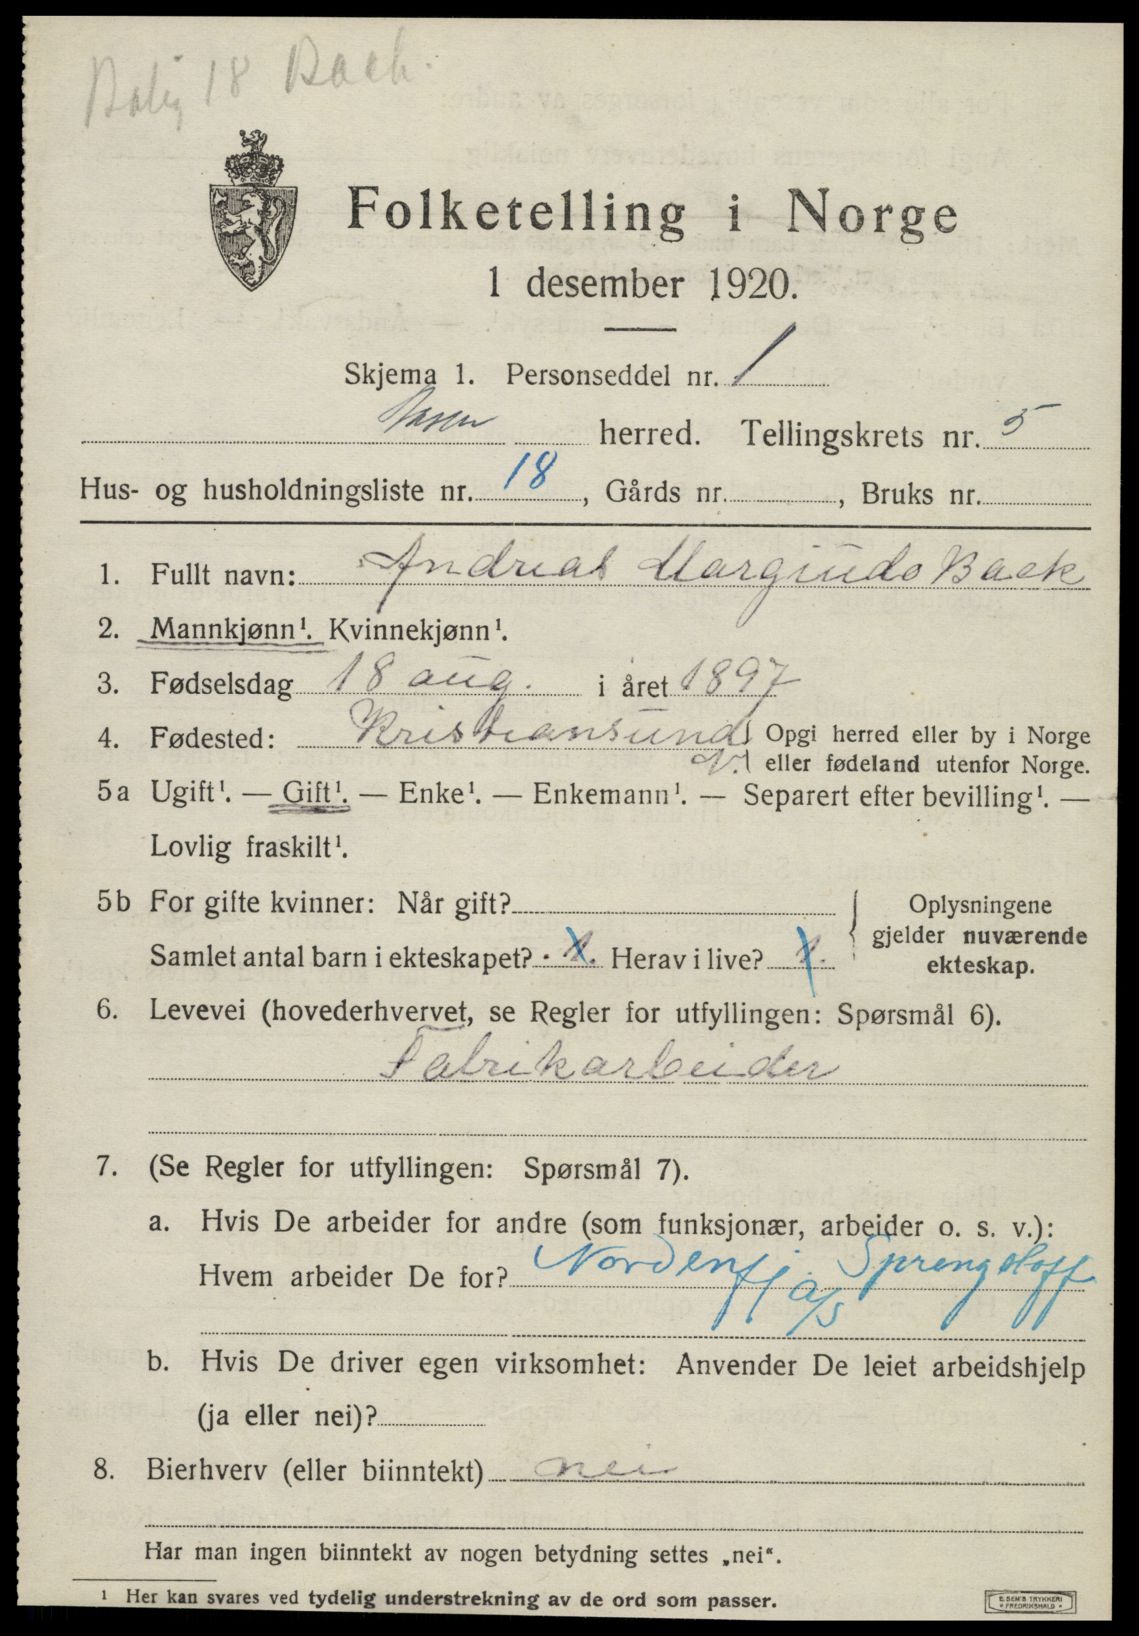 Bolig 18 Bach.
Folketelling i Norge
1 desember 1920.
Skjema 1. Personseddel nr. 1
herred. Tellingskrets nr. 5
Hus- og husholdningsliste nr. 18, Gårds nr. , Bruks nr.
1. Fullt navn: Andreas Margindo Back
2. Mannkjønn¹. Kvinnekjønn¹.
3. Fødselsdag 18 aug. i året 1897
4. Fødested: Kristiansund N. } Opgi herred eller by i Norge
eller fødeland utenfor Norge.
5a Ugift¹. — Gift¹. — Enke¹. — Enkemann¹. — Separert efter bevilling¹. —
Lovlig fraskilt¹.
5b For gifte kvinner: Når gift?
Samlet antal barn i ekteskapet? 1. Herav i live? 1.
Oplysningene
gjelder nuværende
ekteskap.
6. Levevei (hovederhvervet, se Regler for utfyllingen: Spørsmål 6).
Fabrikarbeider
7. (Se Regler for utfyllingen: Spørsmål 7).
a. Hvis De arbeider for andre (som funksjonær, arbeider o. s. v.):
Hvem arbeider De for? Nordenfj. Sprengstoff
a/s
b. Hvis De driver egen virksomhet: Anvender De leiet arbeidshjelp
(ja eller nei)?
8. Bierhverv (eller biinntekt) nei
Har man ingen biinntekt av nogen betydning settes „nei“.
¹ Her kan svares ved tydelig understrekning av de ord som passer.
E. SEM'S TRYKKERI
FREDRIKSHALD